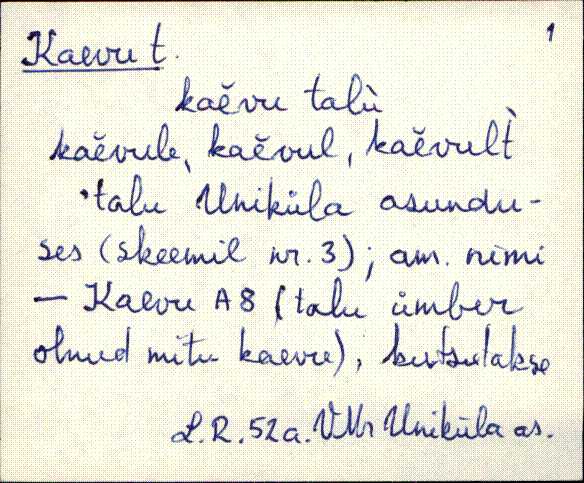 Kaevu t. 1
kaĕvu talù
kaĕvule, kaĕvul, kaĕvult̀
talu Uniküla asundu-
ses (skeemil nr. 3); am. nimi
— Kaevu A8 (talu ümber
olnud mitu kaevu), kutsutakse
L.R. 52a. VMr Uniküla as.